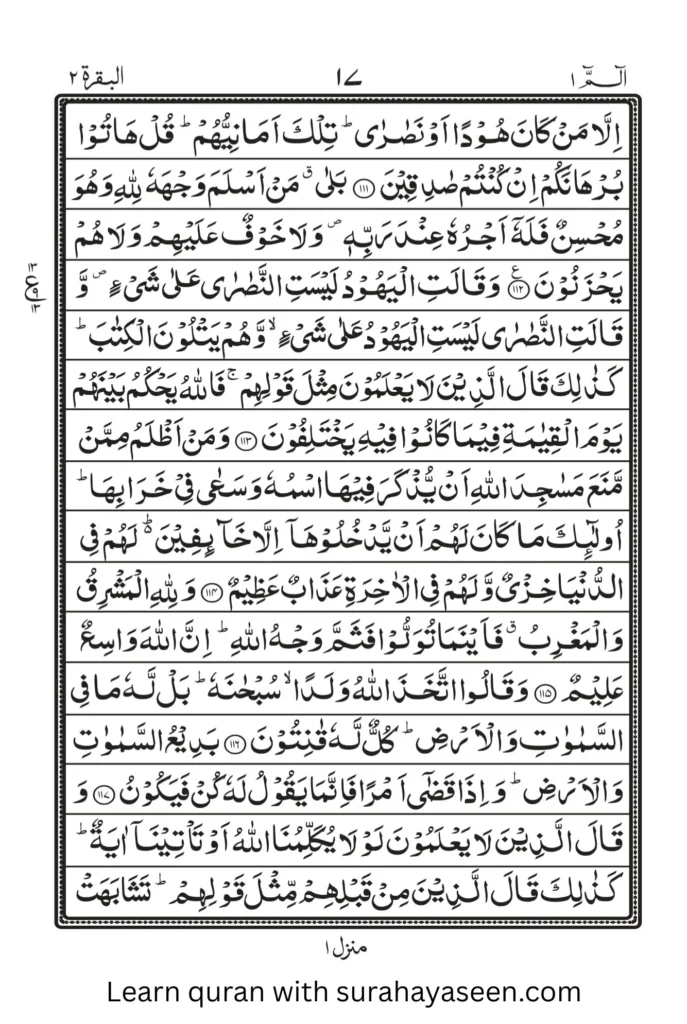 الٓـمّٓ ١
١٧
البقرة ٢
اِلَّا مَنۡ كَانَ هُوۡدًا اَوۡ نَصٰرٰى ؕ تِلۡكَ اَمَانِيُّهُمۡ ؕ قُلۡ هَاتُوۡا
بُرۡهَانَكُمۡ اِنۡ كُنۡتُمۡ صٰدِقِيۡنَ ﴿۱۱۱﴾ بَلٰى ۚ مَنۡ اَسۡلَمَ وَجۡهَهٗ لِلّٰهِ وَهُوَ
مُحۡسِنٌ فَلَهٗۤ اَجۡرُهٗ عِنۡدَ رَبِّهٖ ۪ وَلَا خَوۡفٌ عَلَيۡهِمۡ وَلَا هُمۡ
يَحۡزَنُوۡنَ ﴿۱۱۲﴾ وَقَالَتِ الۡيَهُوۡدُ لَيۡسَتِ النَّصٰرٰى عَلٰى شَىۡءٍ ۪ وَّ
قَالَتِ النَّصٰرٰى لَيۡسَتِ الۡيَهُوۡدُ عَلٰى شَىۡءٍ ۙ وَّهُمۡ يَتۡلُوۡنَ الۡكِتٰبَ ؕ
كَذٰلِكَ قَالَ الَّذِيۡنَ لَا يَعۡلَمُوۡنَ مِثۡلَ قَوۡلِهِمۡ ۚ فَاللّٰهُ يَحۡكُمُ بَيۡنَهُمۡ
يَوۡمَ الۡقِيٰمَةِ فِيۡمَا كَانُوۡا فِيۡهِ يَخۡتَلِفُوۡنَ ﴿۱۱۳﴾ وَمَنۡ اَظۡلَمُ مِمَّنۡ
مَّنَعَ مَسٰجِدَ اللّٰهِ اَنۡ يُّذۡكَرَ فِيۡهَا اسۡمُهٗ وَسَعٰى فِىۡ خَرَابِهَا ؕ
اُولٰٓئِكَ مَا كَانَ لَهُمۡ اَنۡ يَّدۡخُلُوۡهَاۤ اِلَّا خَآئِفِيۡنَ ؕ لَهُمۡ فِى
الدُّنۡيَا خِزۡىٌ وَّلَهُمۡ فِى الۡاٰخِرَةِ عَذَابٌ عَظِيۡمٌ ﴿۱۱۴﴾ وَلِلّٰهِ الۡمَشۡرِقُ
وَالۡمَغۡرِبُ ۚ فَاَيۡنَمَا تُوَلُّوۡا فَثَمَّ وَجۡهُ اللّٰهِ ؕ اِنَّ اللّٰهَ وَاسِعٌ
عَلِيۡمٌ ﴿۱۱۵﴾ وَقَالُوا اتَّخَذَ اللّٰهُ وَلَدًا ۙ سُبۡحٰنَهٗ ؕ بَلۡ لَّهٗ مَا فِى
السَّمٰوٰتِ وَالۡاَرۡضِ ؕ كُلٌّ لَّهٗ قٰنِتُوۡنَ ﴿۱۱۶﴾ بَدِيۡعُ السَّمٰوٰتِ
وَالۡاَرۡضِ ؕ وَاِذَا قَضٰٓى اَمۡرًا فَاِنَّمَا يَقُوۡلُ لَهٗ كُنۡ فَيَكُوۡنُ ﴿۱۱۷﴾ وَ
قَالَ الَّذِيۡنَ لَا يَعۡلَمُوۡنَ لَوۡلَا يُكَلِّمُنَا اللّٰهُ اَوۡ تَاۡتِيۡنَاۤ اٰيَةٌ ؕ
كَذٰلِكَ قَالَ الَّذِيۡنَ مِنۡ قَبۡلِهِمۡ مِّثۡلَ قَوۡلِهِمۡ ؕ تَشَابَهَتۡ
منزل ١
Learn quran with surahayaseen.com